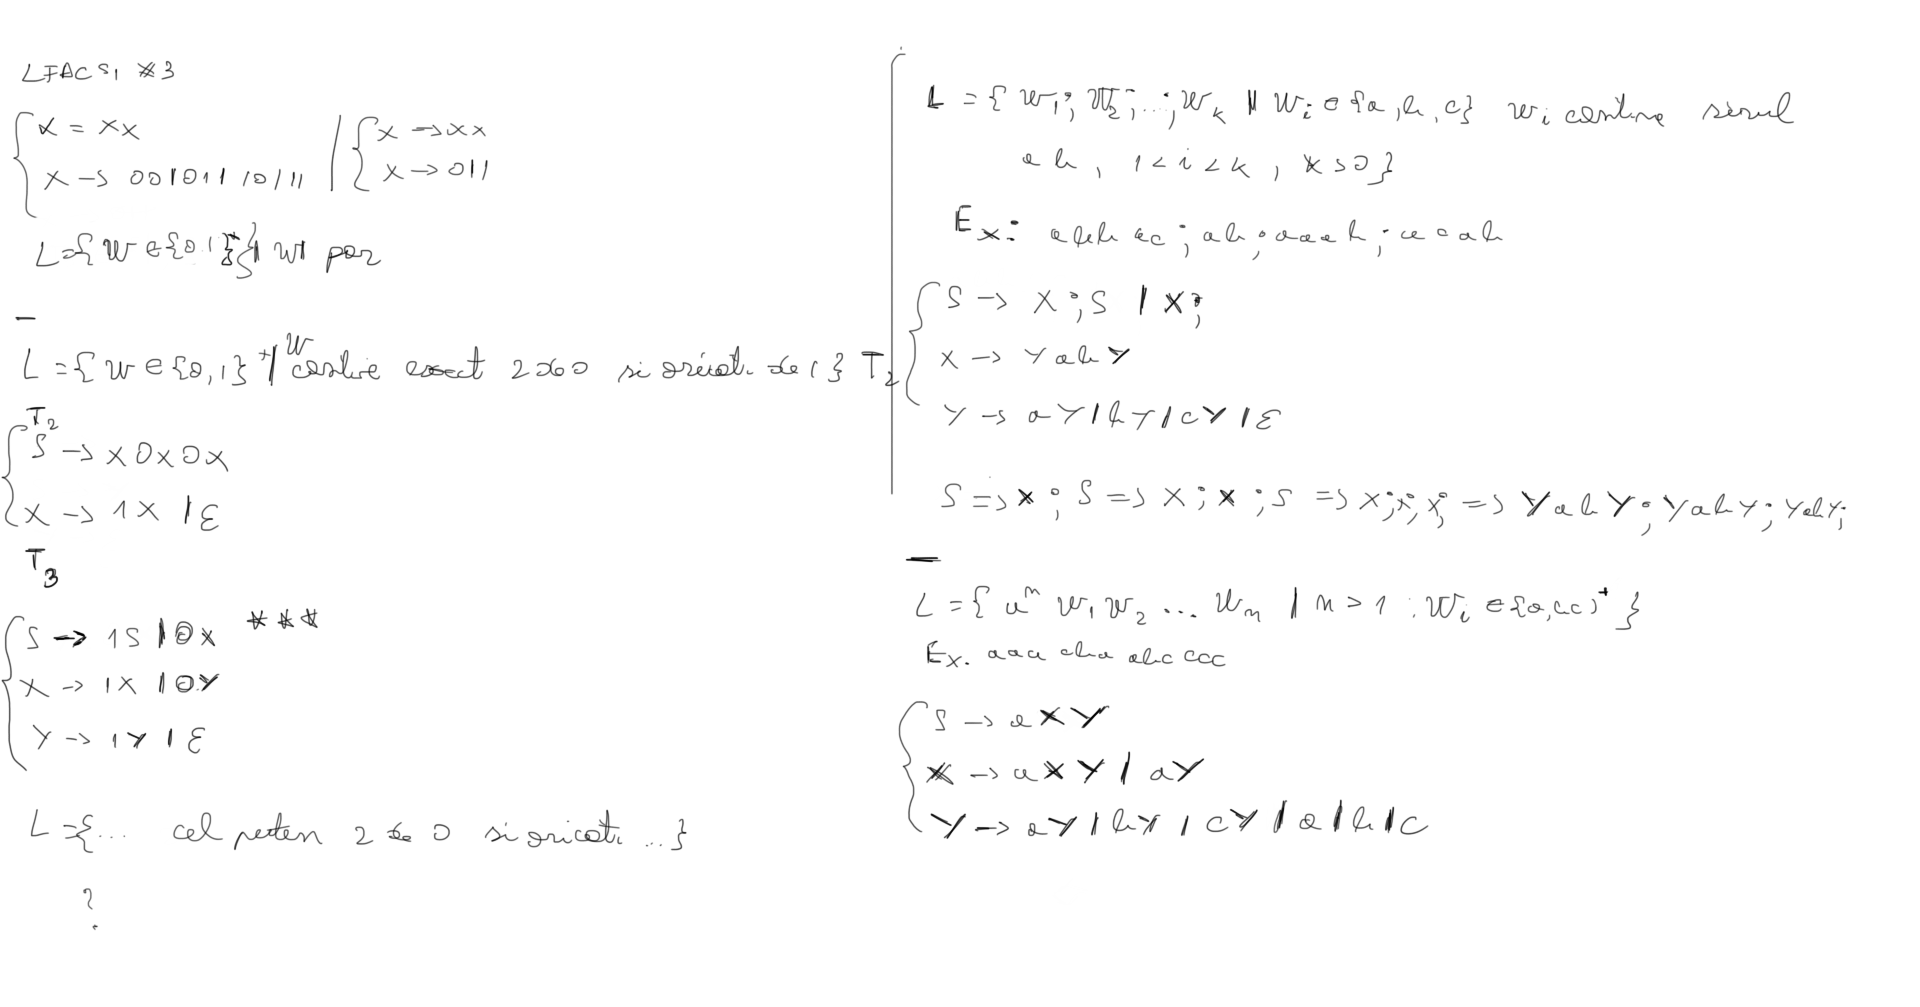 LFACS1 #3
X = XX
X → 00101110111
X → XX
X → 011
L={W∈{0,1}*| |W| par
L={w∈{0,1}*| W contine exact 2 de 0 si oricat. de 1} T2
T2
S → X0X0X
X → 1X | ε
T3
S → 1S | 0X ***
X → 1X | 0Y
Y → 1Y | ε
L={... cel putin 2 de 0 si oricat. ...}
?
L={W1; W2; ...; Wk | Wi ∈ {a,b,c} wi contine sirul
ab, 1<i<k, k>0}
Ex: abbac; ab; aaab;
S → X;S | X;
X → YabY
Y → aY | bY | cY | ε
S => X;S => X;X;S => X;X;X; => YabY; YabY; YabY;
L={a^n w1 w2 ... wn | n>1
Ex. aaa cba abc ccc
S → aXY
X → aXY | aY
Y → aY | bY | cY | a | b | c